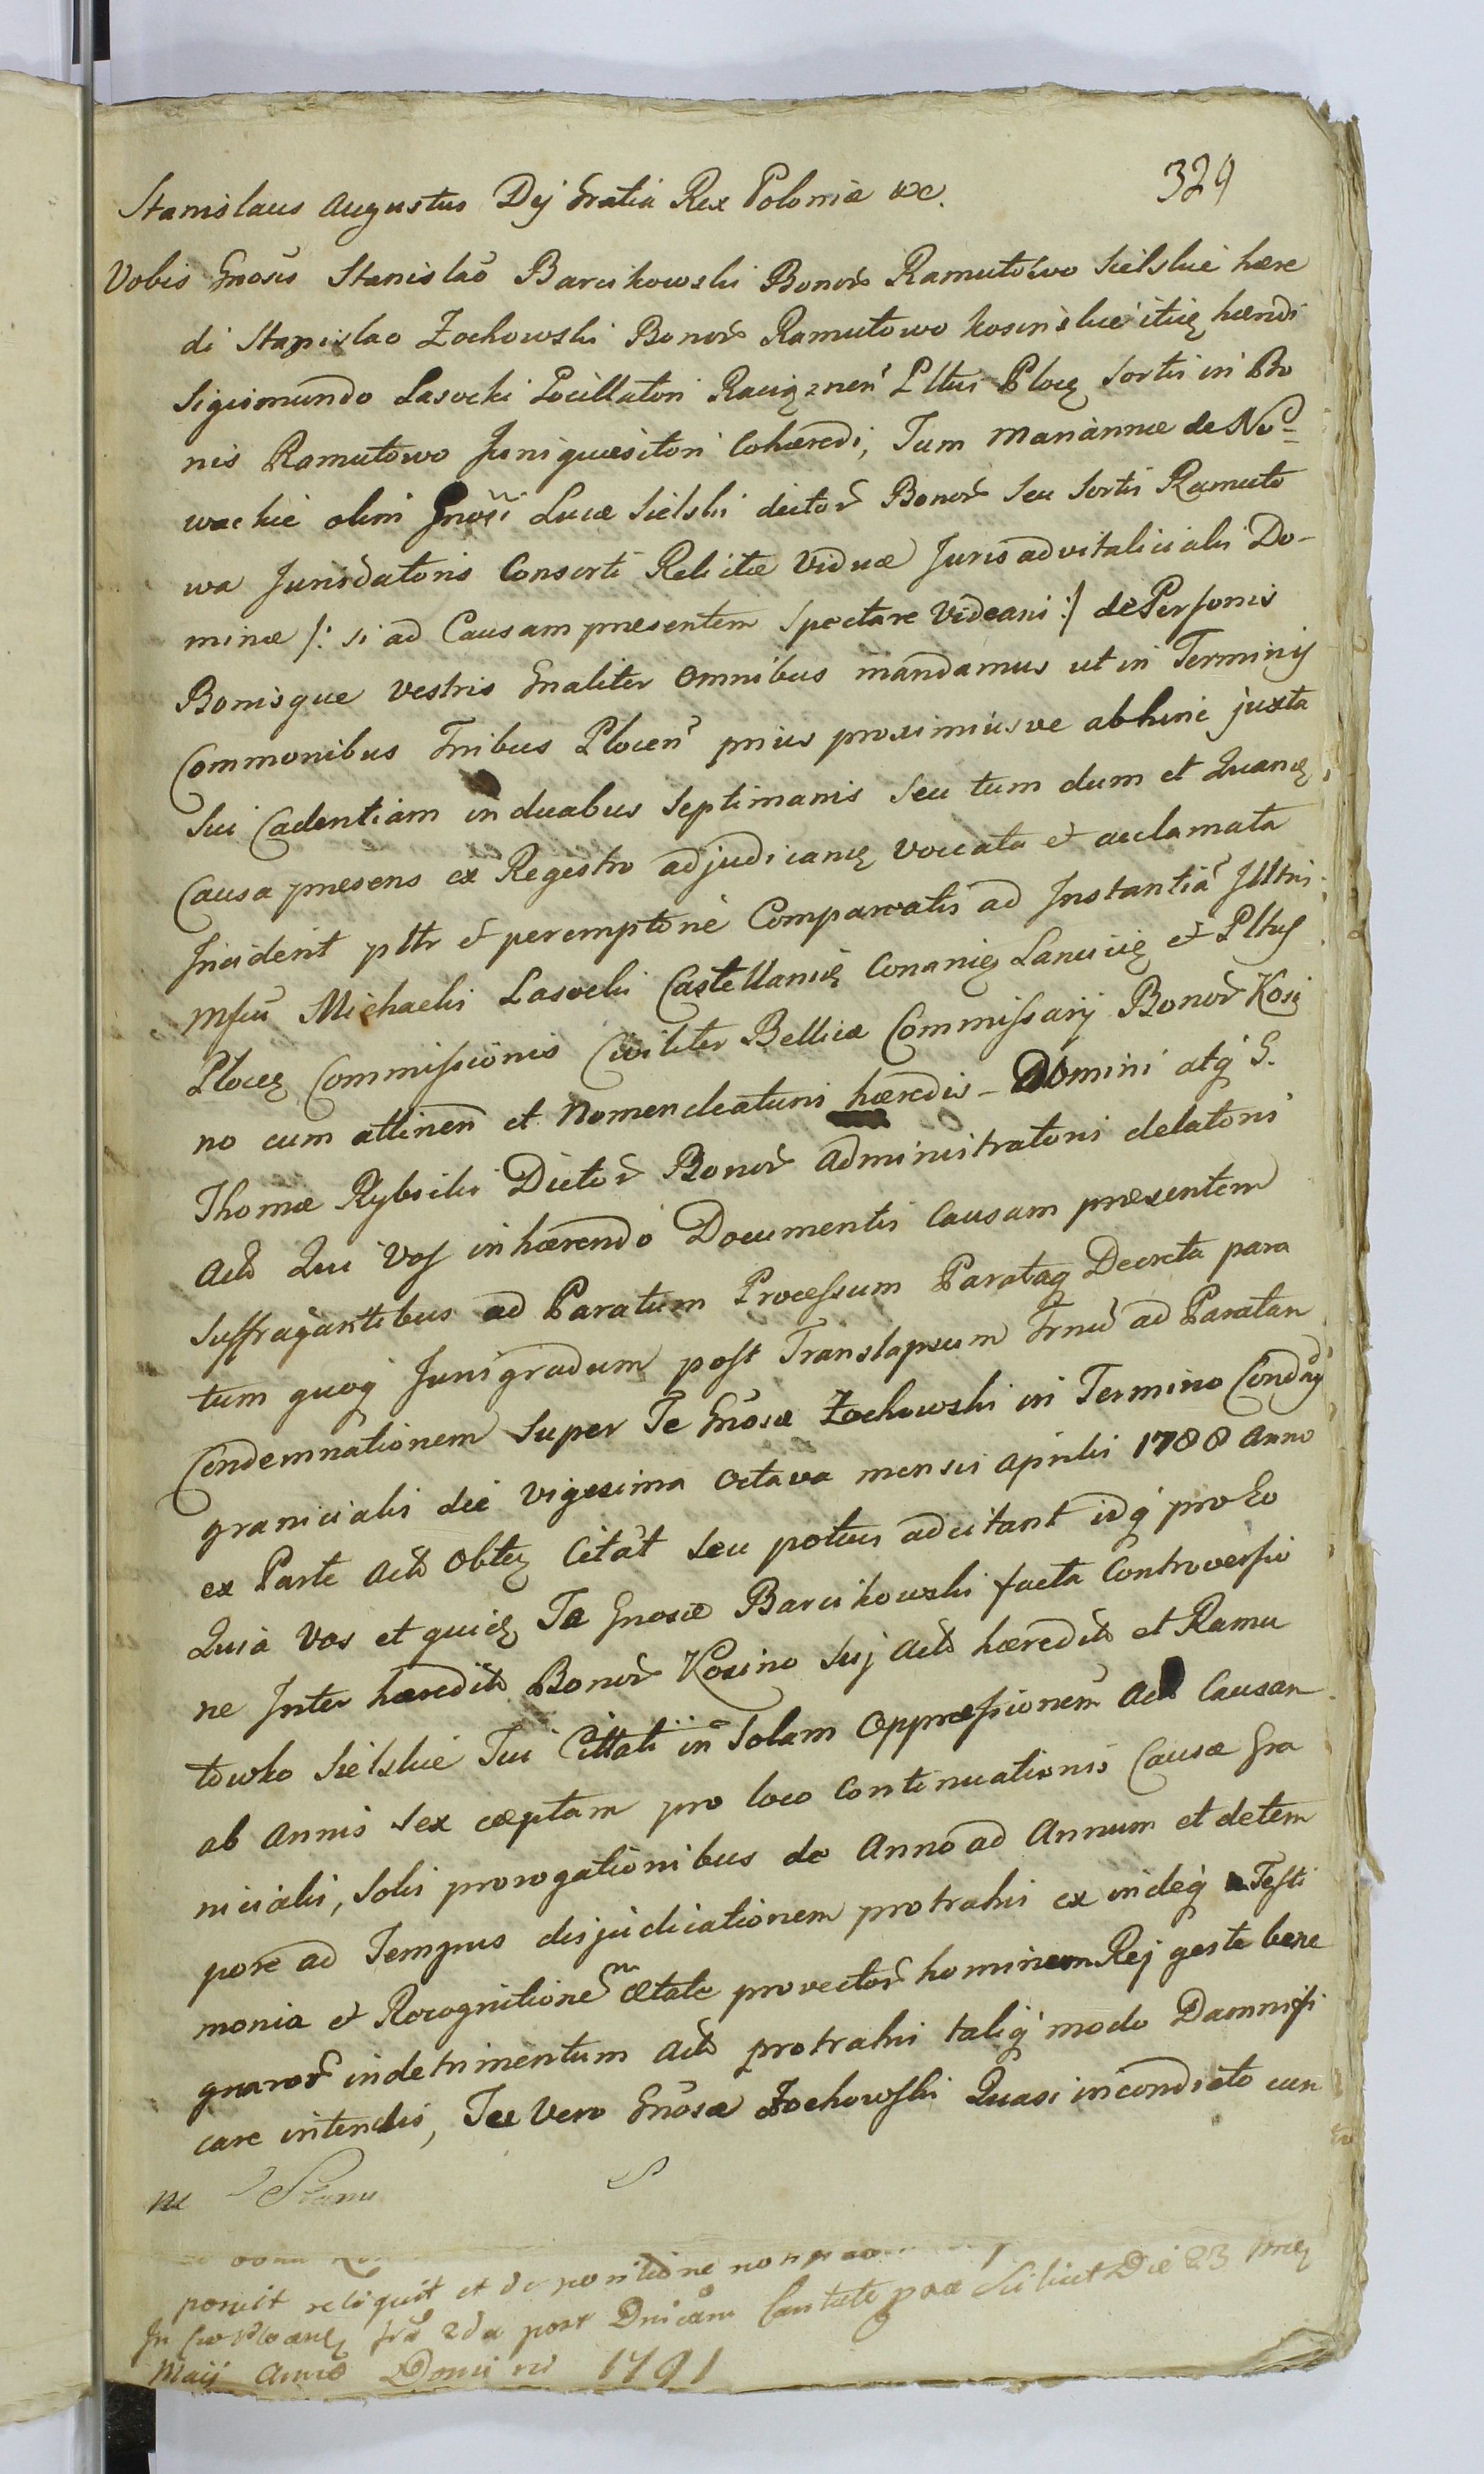 329
Stanislaus Augustus Dij Gratia Rex Poloniæ &c.
Vobis Gnosis Stanislaō Barcikowski Bonor̃ Ramutowo Sielskie hære
di Stanislao Żochowski Bonor̃ Ramutowo kosinskie itiē hærdi
Sigismundo Lasocki Pocillatori Raciąznen̄ Pltus Plocē Sortis in Bo
nis Ramutowo Juriquæsitori Cohæredi, Tum Mariannæ de No-
wackie olim Gnosi Lucæ Sielski dictor̃ Bonor̃ seu Sortis Ramuto
wa Jurisdatoris Consorti Relictæ Viduæ Juris advitalicialis Do-
minæ /: si ad Causam præsentem Spectare Videaris :/ de Personis
Bonisque vestris Gnaliter Omnibus mandamus ut in Terminis
Commonibus Tribus Plocen̄ prius proximiusve abhinc juxta
Sui Cadentiam in duabus Septimanis Seu tum dum et Quando
Causa præsens ex Regestro adjudicanē voccata et acclamata
Inciderit pltr et peremptorie Compareatis ad Instantiã Illtris
Msci Michaelis Lasocki Castellanidē Conariē Lancicię et Pltus
Plocē Commissionis Civiliter Bellicæ Commissarij Bonor̃ Kosi
no cum attinen̄ et Nomencleaturis hæredis - Domini atq̃ G.
Thomæ Rybicki Dictor̃ Bonor̃ Administratoris delatoris
Actō Qui Vos inhærendo Documentis Causam præsentem
Suffragantibus ad Paratum Processum Parataq̃ Decreta para
tum quoq̃ Jurigradum post Translapsum Trnū ad Paratan
Condemnationem Super Te Gnose Żochowski in Termino Condicti
granicialis die Vigesima Octava mensis Aprilis 1788 Anno
ex Parte Actō Obtē Citat Seu potius adcitant idq̃ pro Eo
Quia Vos et quidē Te Gnose Barcikowski facta Controversio
ne Inter hæredit̃ Bonor̃ Kosino Sui Actō hæredit̃ et Ramu
towko Sielskie Tui Cittati in Solam Oppressionem Act Causan
ab Annis Sex cæptam pro loco Continuationis Causæ Gra
nicialis, Solis prorogationibus de Anno ad Annum et detem
pore ad Tempus disjudicationem protrahis ex indeq̃ Testi
monia et Recognitionem ætate provector̃ hominem Rej gestæ bene
gnaror̃ in detrimentum Actō protrahis taliq̃ modo Damnifi
care intendis, Te Vero Gnose Żochowski Quasi in condicto cun
posuit reliquit et de positione
fra 2da post Dnicam Cantate prox Scilicet Die 23 Mē
Maij Anno Domini 1791